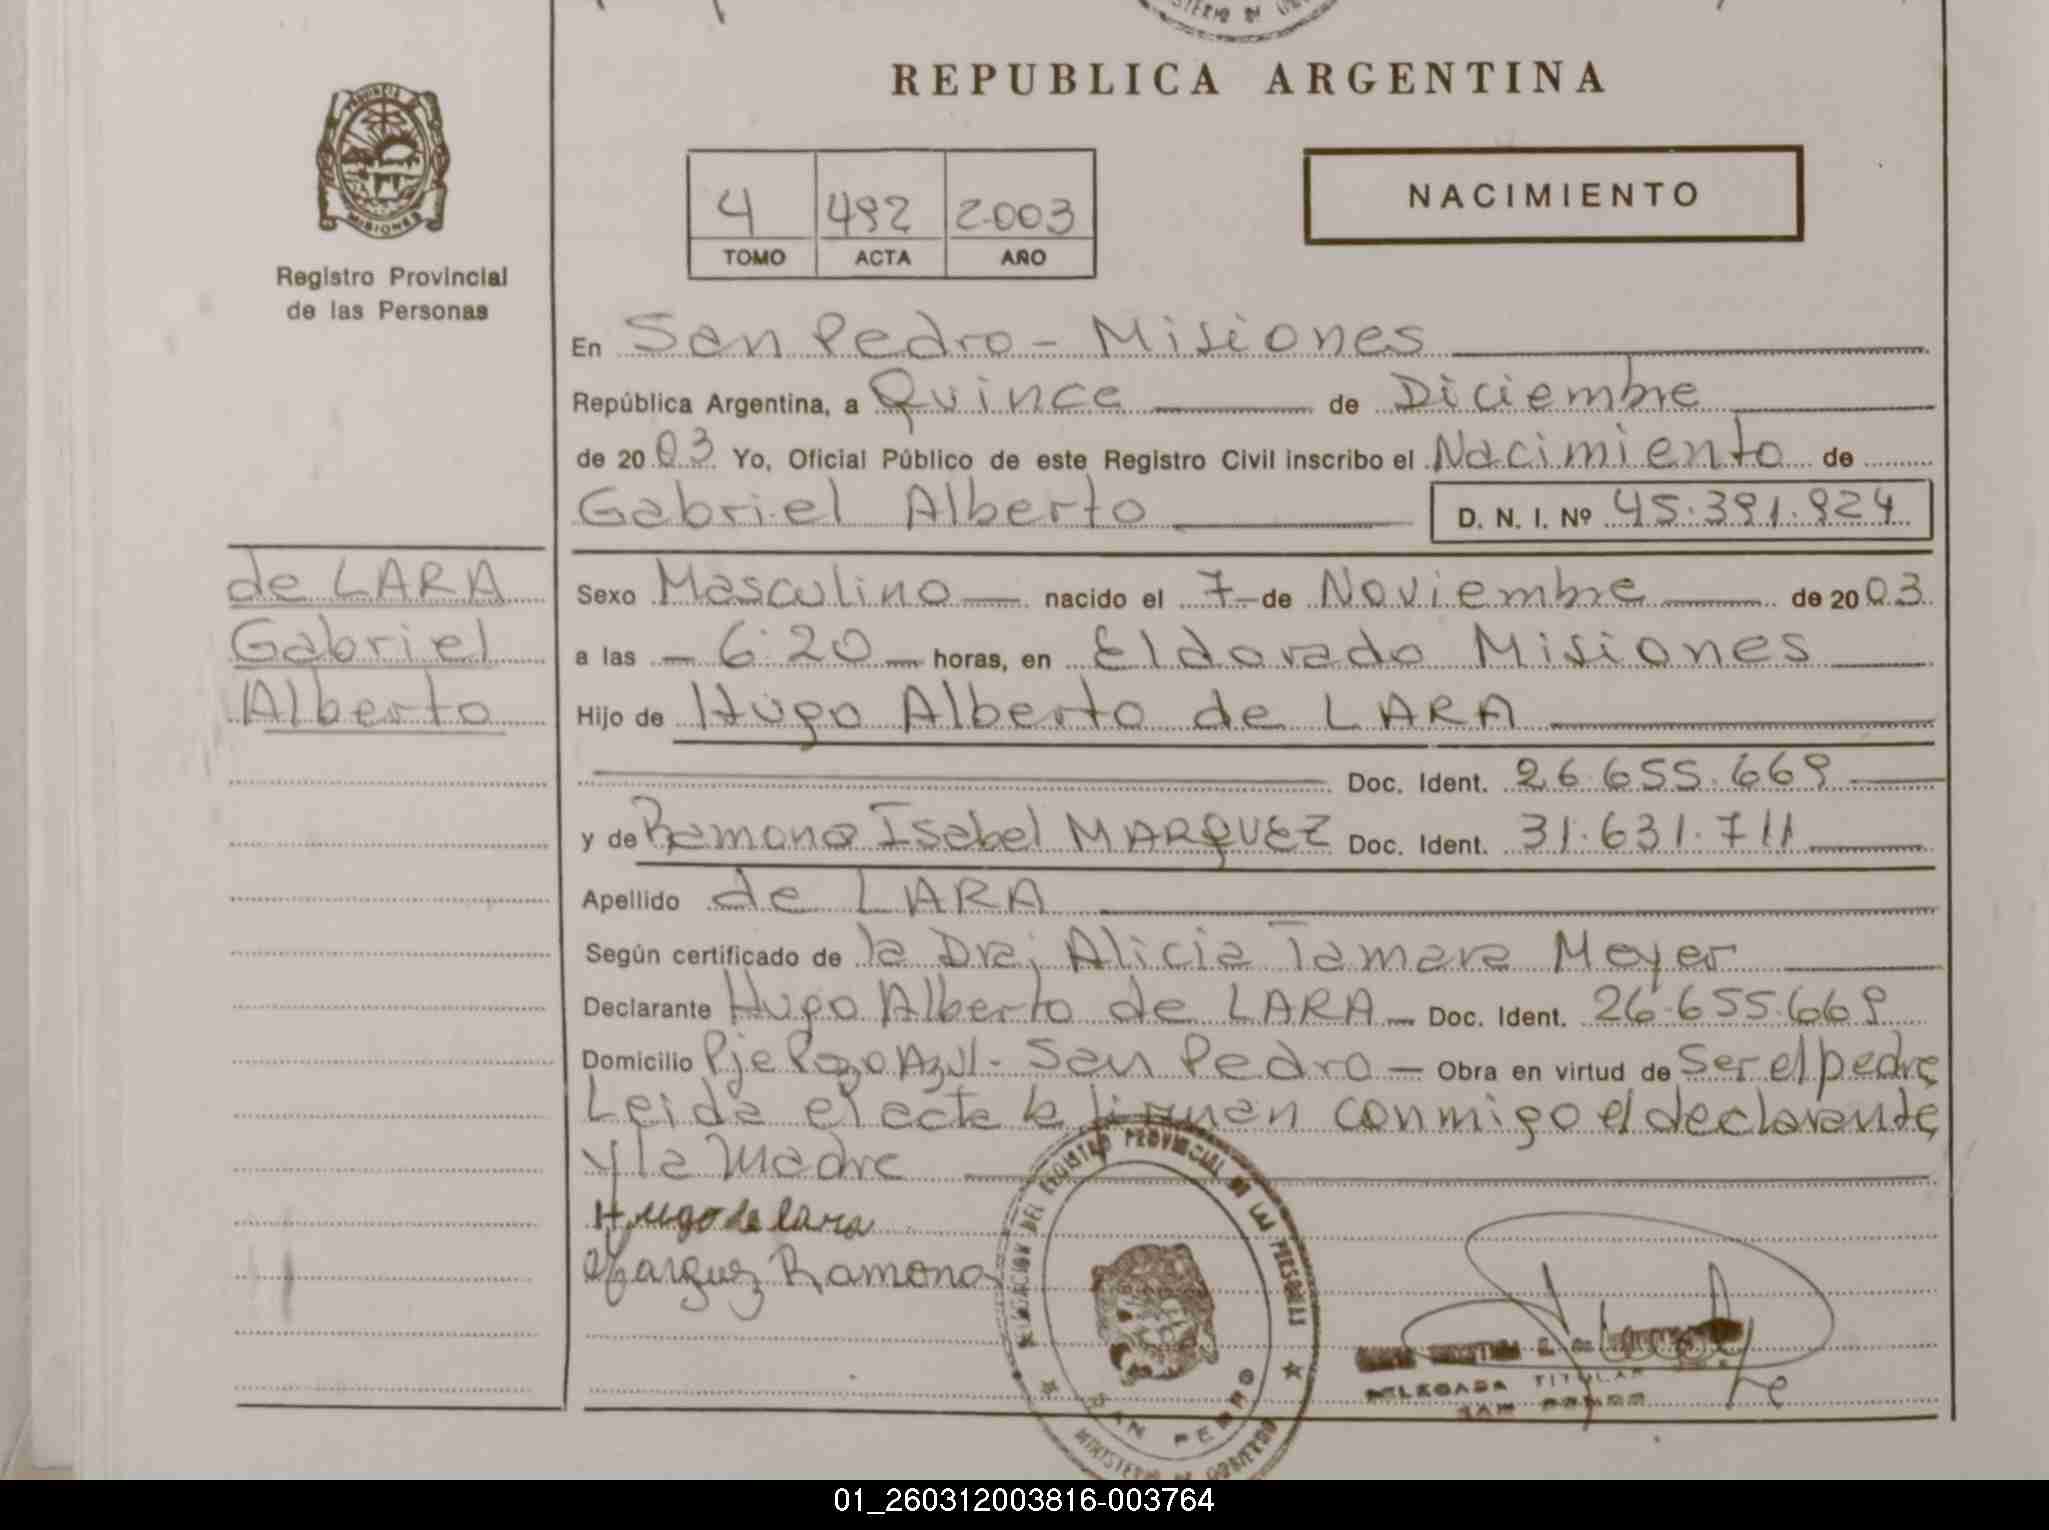 MINISTERIO DE GOBIERNO
REPUBLICA ARGENTINA
PROVINCIA DE
MISIONES
Registro Provincial
de las Personas
4 492 2003
TOMO ACTA AÑO
NACIMIENTO
En San Pedro - Misiones
República Argentina, a Quince de Diciembre
de 2003 Yo, Oficial Público de este Registro Civil inscribo el Nacimiento de
Gabriel Alberto D. N. I. Nº 45.391.924
de LARA
Gabriel
Alberto
Sexo Masculino nacido el 7 de Noviembre de 2003
a las 6:20 horas, en Eldorado Misiones
Hijo de Hugo Alberto de LARA
Doc. Ident. 26.655.669
y de Ramona Isabel MARQUEZ Doc. Ident. 31.631.711
Apellido de LARA
Según certificado de la Dra; Alicia Tamara Meyer
Declarante Hugo Alberto de LARA Doc. Ident. 26.655.669
Domicilio Pje Pozo Azul - San Pedro Obra en virtud de Ser el padre
Leida el acta la firman conmigo el declarante
y la Madre
Hugo de lara
Marquez Ramona
DELEGACION DEL REGISTRO PROVINCIAL DE LAS PERSONAS
SAN PEDRO
MINISTERIO DE GOBIERNO
DELEGADA TITULAR
SAN PEDRO
01_260312003816-003764